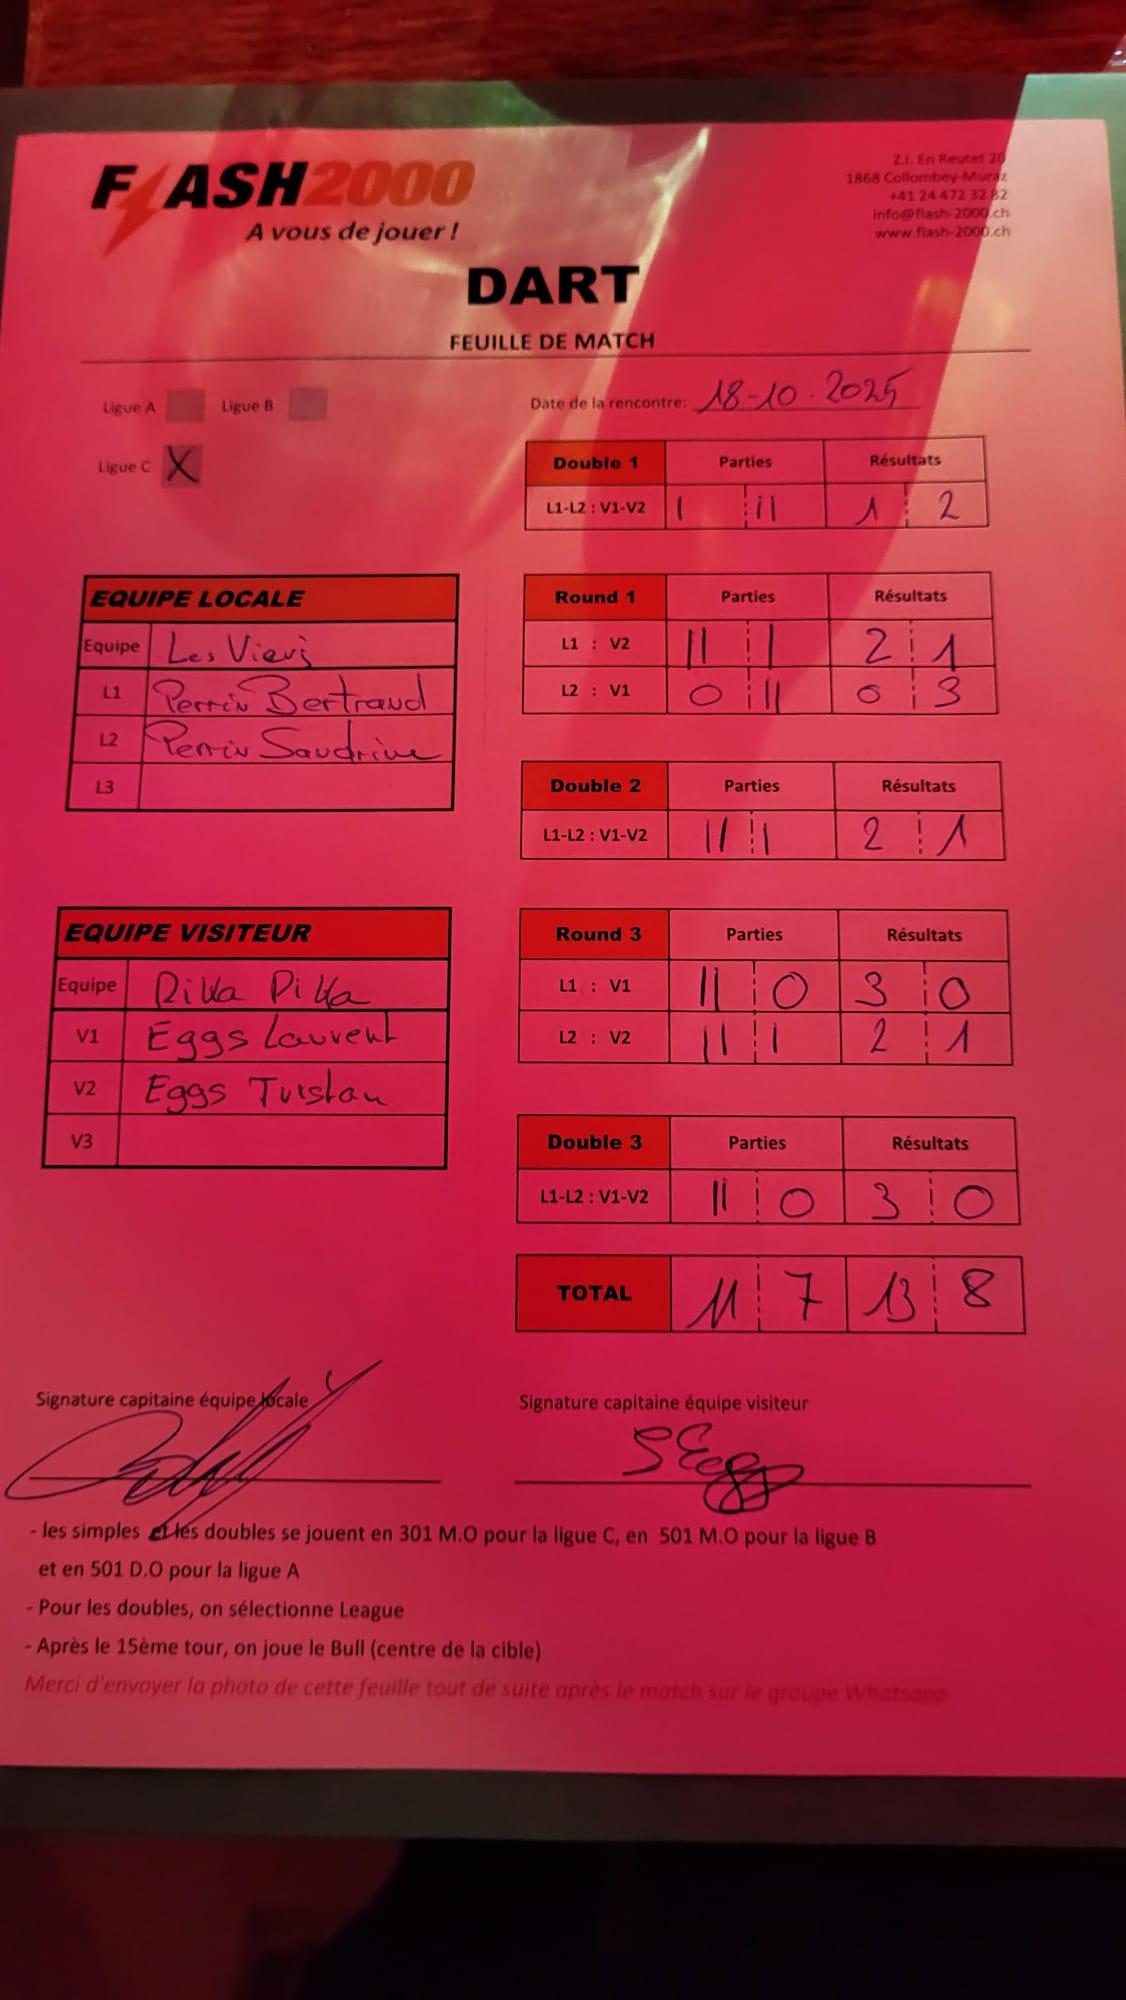 FLASH2000
A vous de jouer !
Z.I. En Reutet 20
1868 Collombey-Muraz
+41 24 472 32 82
info@flash-2000.ch
www.flash-2000.ch
DART
FEUILLE DE MATCH
Ligue A Ligue B
Ligue C X
Date de la rencontre: 18-10-2025
Double 1 Parties Résultats
L1-L2 : V1-V2 | || 1 2
EQUIPE LOCALE
Equipe Les Vieris
L1 Perrin Bertrand
L2 Perrin Sandrine
L3
Round 1 Parties Résultats
L1 : V2 || | 2 1
L2 : V1 0 || 0 3
Double 2 Parties Résultats
L1-L2 : V1-V2 || | 2 1
EQUIPE VISITEUR
Equipe Dilla Dilla
V1 Eggs Laurent
V2 Eggs Turstan
V3
Round 3 Parties Résultats
L1 : V1 || 0 3 0
L2 : V2 || | 2 1
Double 3 Parties Résultats
L1-L2 : V1-V2 || 0 3 0
TOTAL 11 7 13 8
Signature capitaine équipe locale
Signature capitaine équipe visiteur
S Eggs
- les simples et les doubles se jouent en 301 M.O pour la ligue C, en 501 M.O pour la ligue B
et en 501 D.O pour la ligue A
- Pour les doubles, on sélectionne League
- Après le 15ème tour, on joue le Bull (centre de la cible)
Merci d'envoyer la photo de cette feuille tout de suite après le match sur le groupe Whatsapp